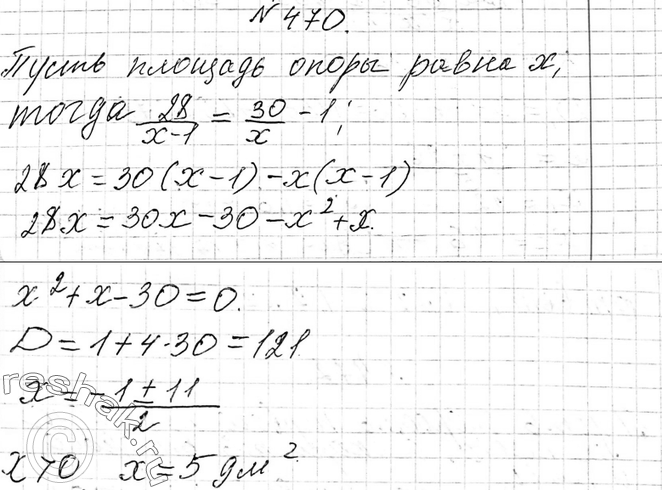 № 470.
Пусть площадь опоры равна x,
тогда 28/(x-1) = 30/x - 1;
28x = 30(x-1) - x(x-1)
28x = 30x - 30 - x² + x.
x² + x - 30 = 0.
D = 1 + 4·30 = 121
x = (-1 ± 11)/2
x > 0 x = 5 дм²
reshak.ru